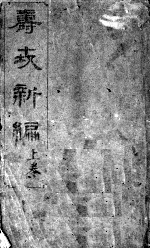 壽世新編
上卷